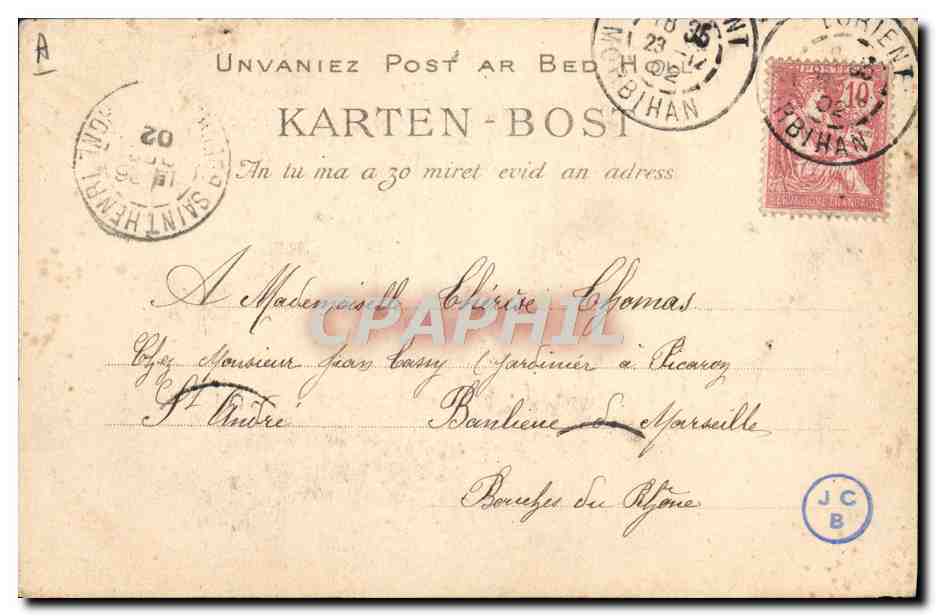 A
UNVANIEZ POST AR BED HOLL
KARTEN-BOST
An tu ma a zo miret evid an adress
LORIENT
18 35
23 12
02
MORBIHAN
LORIENT
02
MORBIHAN
POSTES
10
REPUBLIQUE FRANÇAISE
SAINT HENRI
02
A Mademoiselle Thérèse Thomas
CPAPHIL
Chez Monsieur Jean Cassy (jardinier à Picaron
St André Banlieue de Marseille
Bouches du Rhône
J C
B